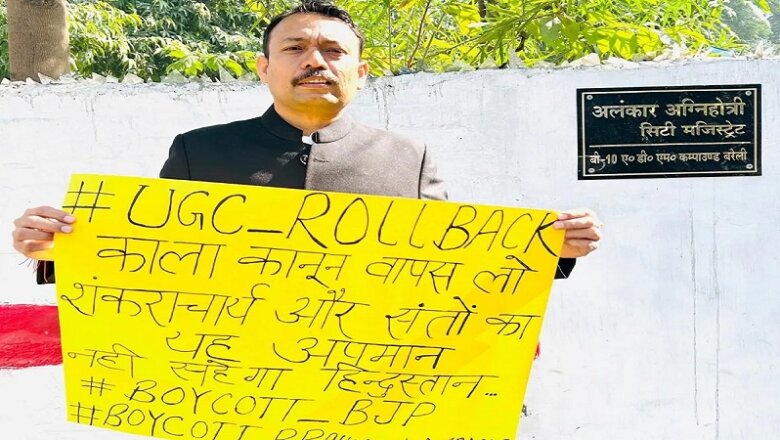 अलंकार अग्निहोत्री
सिटी मजिस्ट्रेट
बी०-10 ए० डी० एम० कम्पाउण्ड बरेली
#UGC_ROLLBACK
काला कानून वापस लो
शंकराचार्य और संतों का
यह अपमान
नही सहेगा हिन्दुस्तान...
# BOYCOTT_BJP
#BOYCOTT